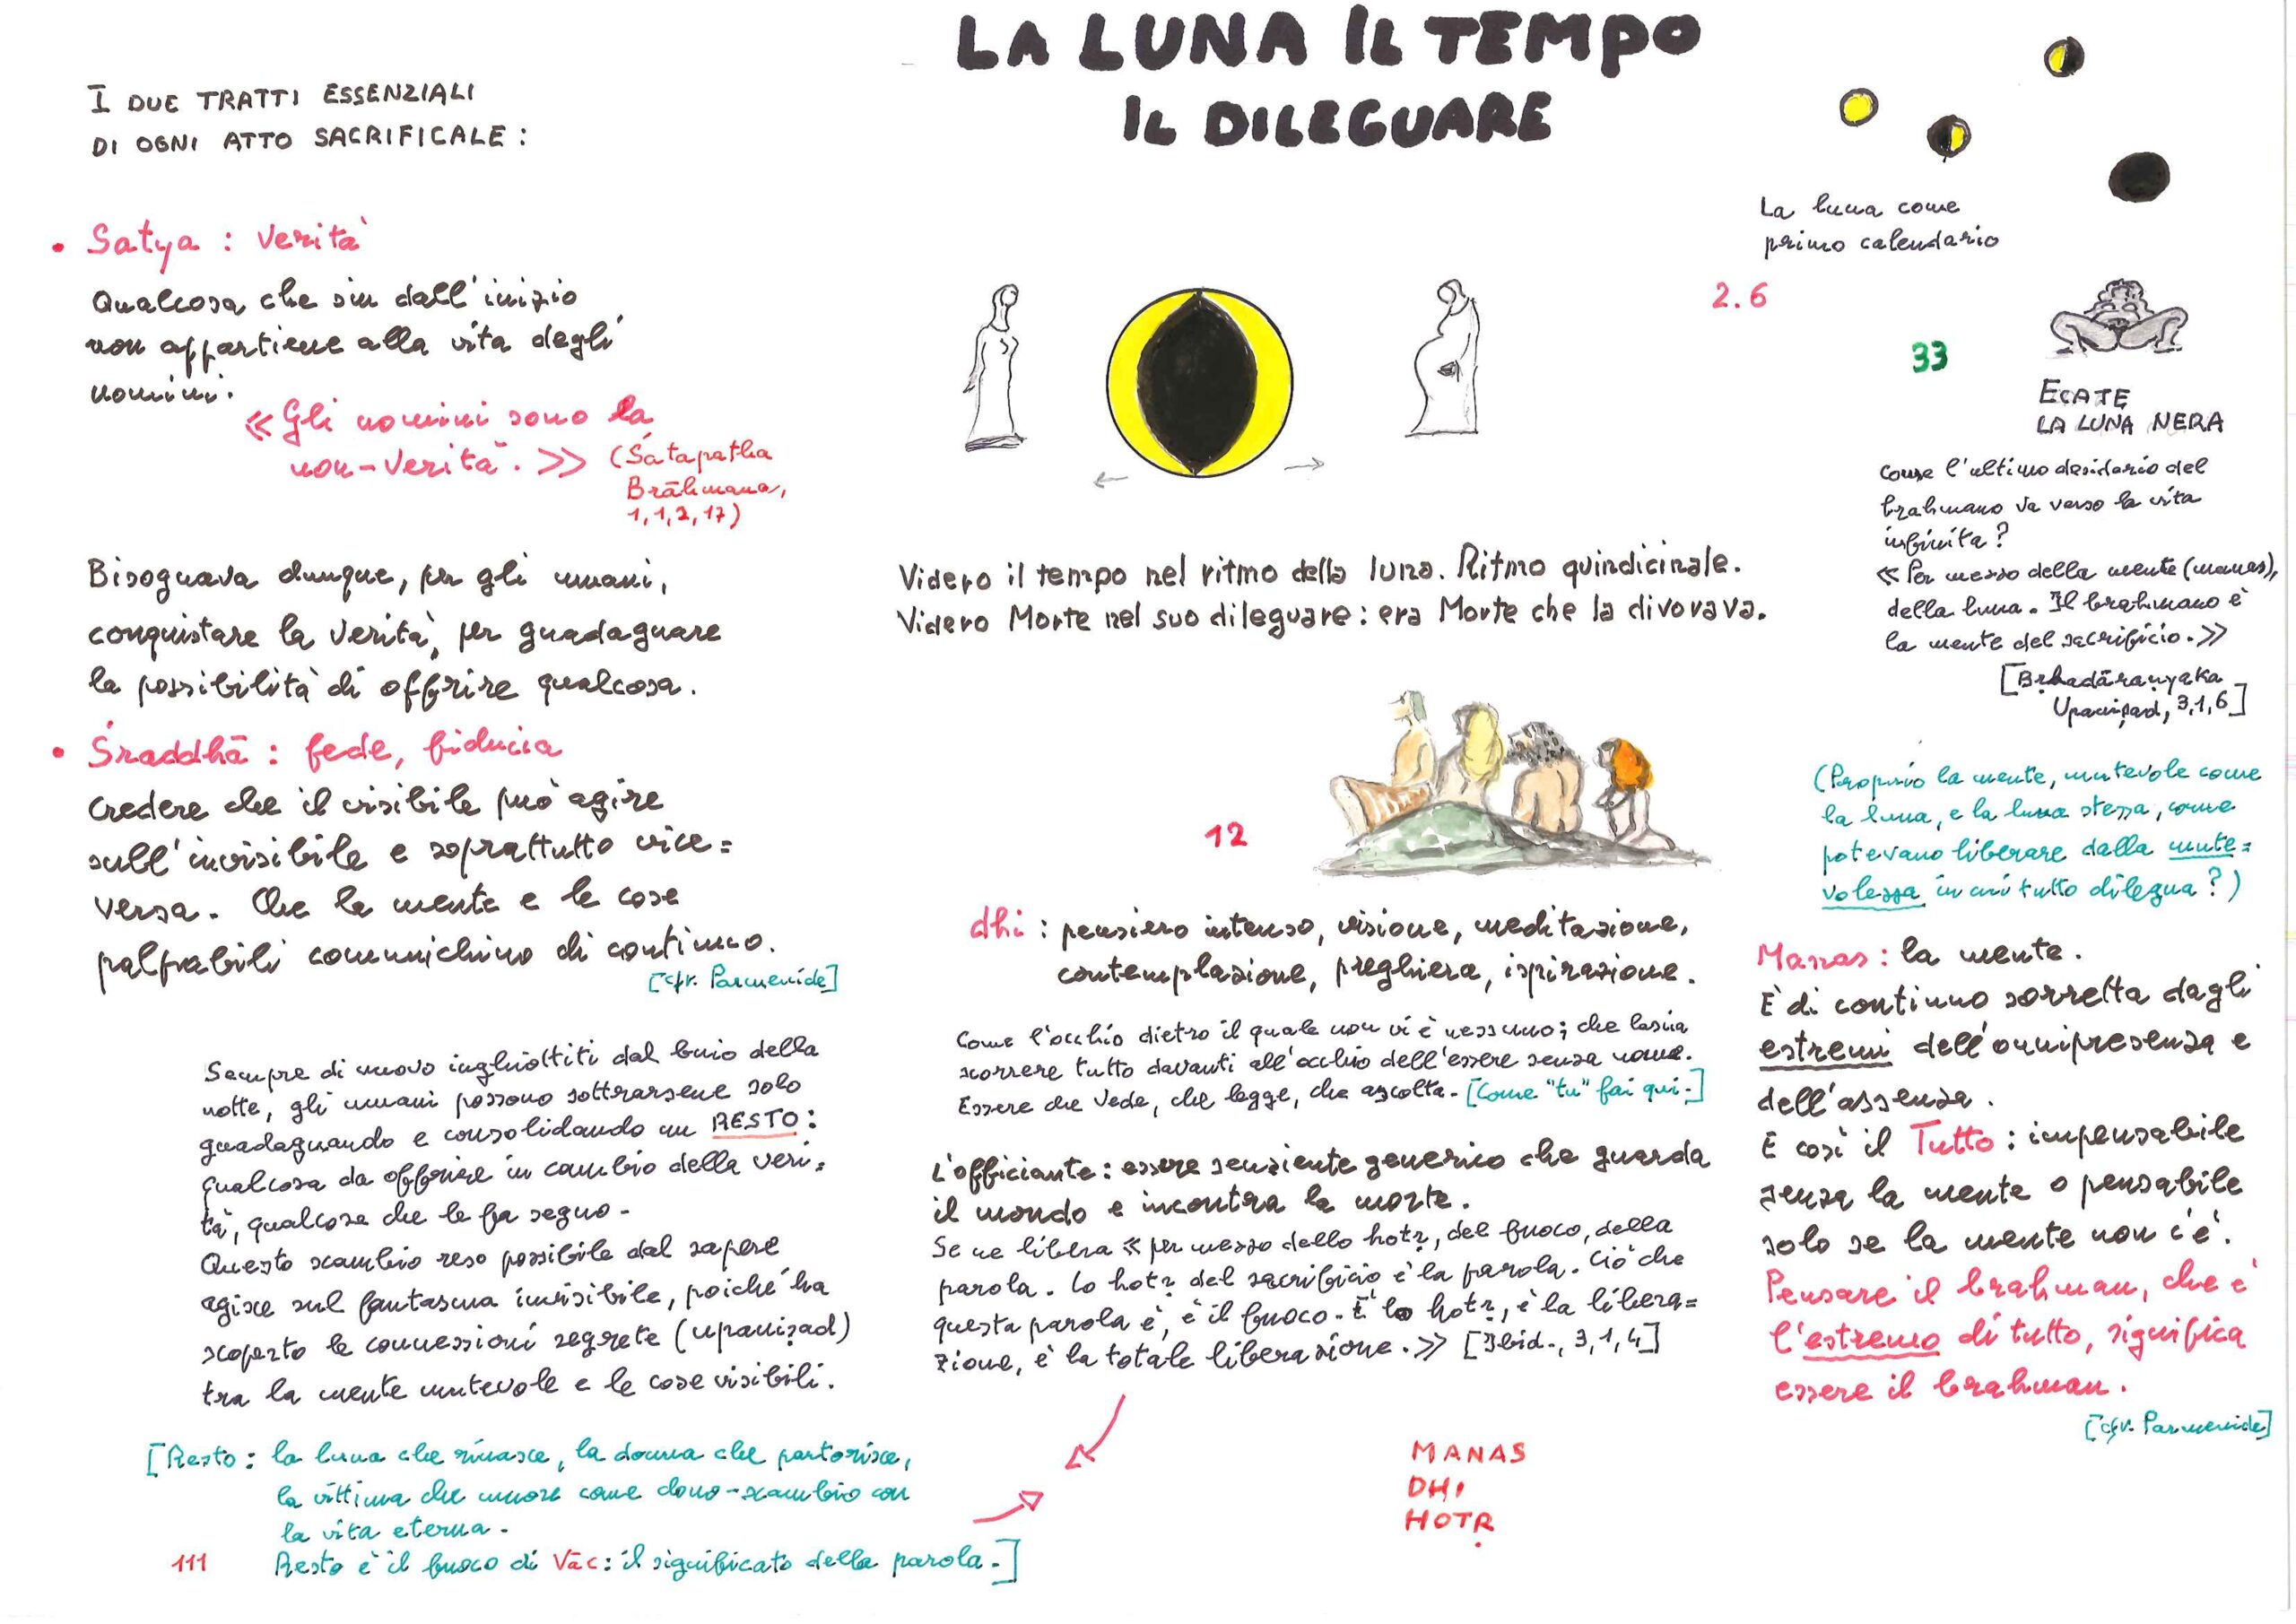 LA LUNA IL TEMPO
IL DILEGUARE
I DUE TRATTI ESSENZIALI
DI OGNI ATTO SACRIFICALE:
• Satya : Verità
Qualcosa che sin dall'inizio
non appartiene alla vita degli
uomini.
«Gli uomini sono la
non-Verità.»
(Śatapatha
Brāhmana,
1,1,2,17)
Bisognava dunque, per gli umani,
conquistare la Verità, per guadagnare
la possibilità di offrire qualcosa.
• Śraddhā : fede, fiducia
Credere che il visibile può agire
sull'invisibile e soprattutto vice=
versa. Che la mente e le cose
palpabili comunichino di continuo.
[cfr. Parmenide]
Sempre di nuovo inghiottiti dal buio della
notte, gli umani possono sottrarsene solo
guadagnando e consolidando un RESTO:
qualcosa da offrire in cambio della veri=
tà, qualcosa che le fa segno.
Questo scambio reso possibile dal sapere
agisce sul fantasma invisibile, poiché ha
scoperto le connessioni segrete (upaniṣad)
tra la mente mutevole e le cose visibili.
[Resto: la luna che rinasce, la donna che partorisce,
la vittima che muore come dono-scambio con
la vita eterna.
Resto è il fuoco di Vāc: il significato della parola.]
111
Videro il tempo nel ritmo della luna. Ritmo quindicinale.
Videro Morte nel suo dileguare: era Morte che la divorava.
12
dhi : pensiero intenso, visione, meditazione,
contemplazione, preghiera, ispirazione.
Come l'occhio dietro il quale non vi è nessuno; che lascia
scorrere tutto davanti all'occhio dell'essere senza nome.
Essere che vede, che legge, che ascolta. [Come "tu" fai qui.]
L'officiante: essere senziente generico che guarda
il mondo e incontra la morte.
Se ne libera «per mezzo dello hotṛ, del fuoco, della
parola. Lo hotṛ del sacrificio è la parola. Ciò che
questa parola è, è il fuoco. È lo hotṛ, è la libera=
zione, è la totale liberazione.» [Ibid., 3,1,4]
MANAS
DHI
HOTṚ
La luna come
primo calendario
2.6
33
ECATE
LA LUNA NERA
Come l'ultimo desiderio del
brahmano va verso la vita
infinita?
«Per mezzo della mente (manas),
della luna. Il brahmano è
la mente del sacrificio.»
[Bṛhadāraṇyaka
Upaniṣad, 3,1,6]
(Proprio la mente, mutevole come
la luna, e la luna stessa, come
potevano liberare dalla mute=
volezza in cui tutto dilegua?)
Manas: la mente.
È di continuo sorretta dagli
estremi dell'onnipresenza e
dell'assenza.
E così il Tutto: impensabile
senza la mente o pensabile
solo se la mente non c'è.
Pensare il brahman, che è
l'estremo di tutto, significa
essere il brahman.
[cfr. Parmenide]